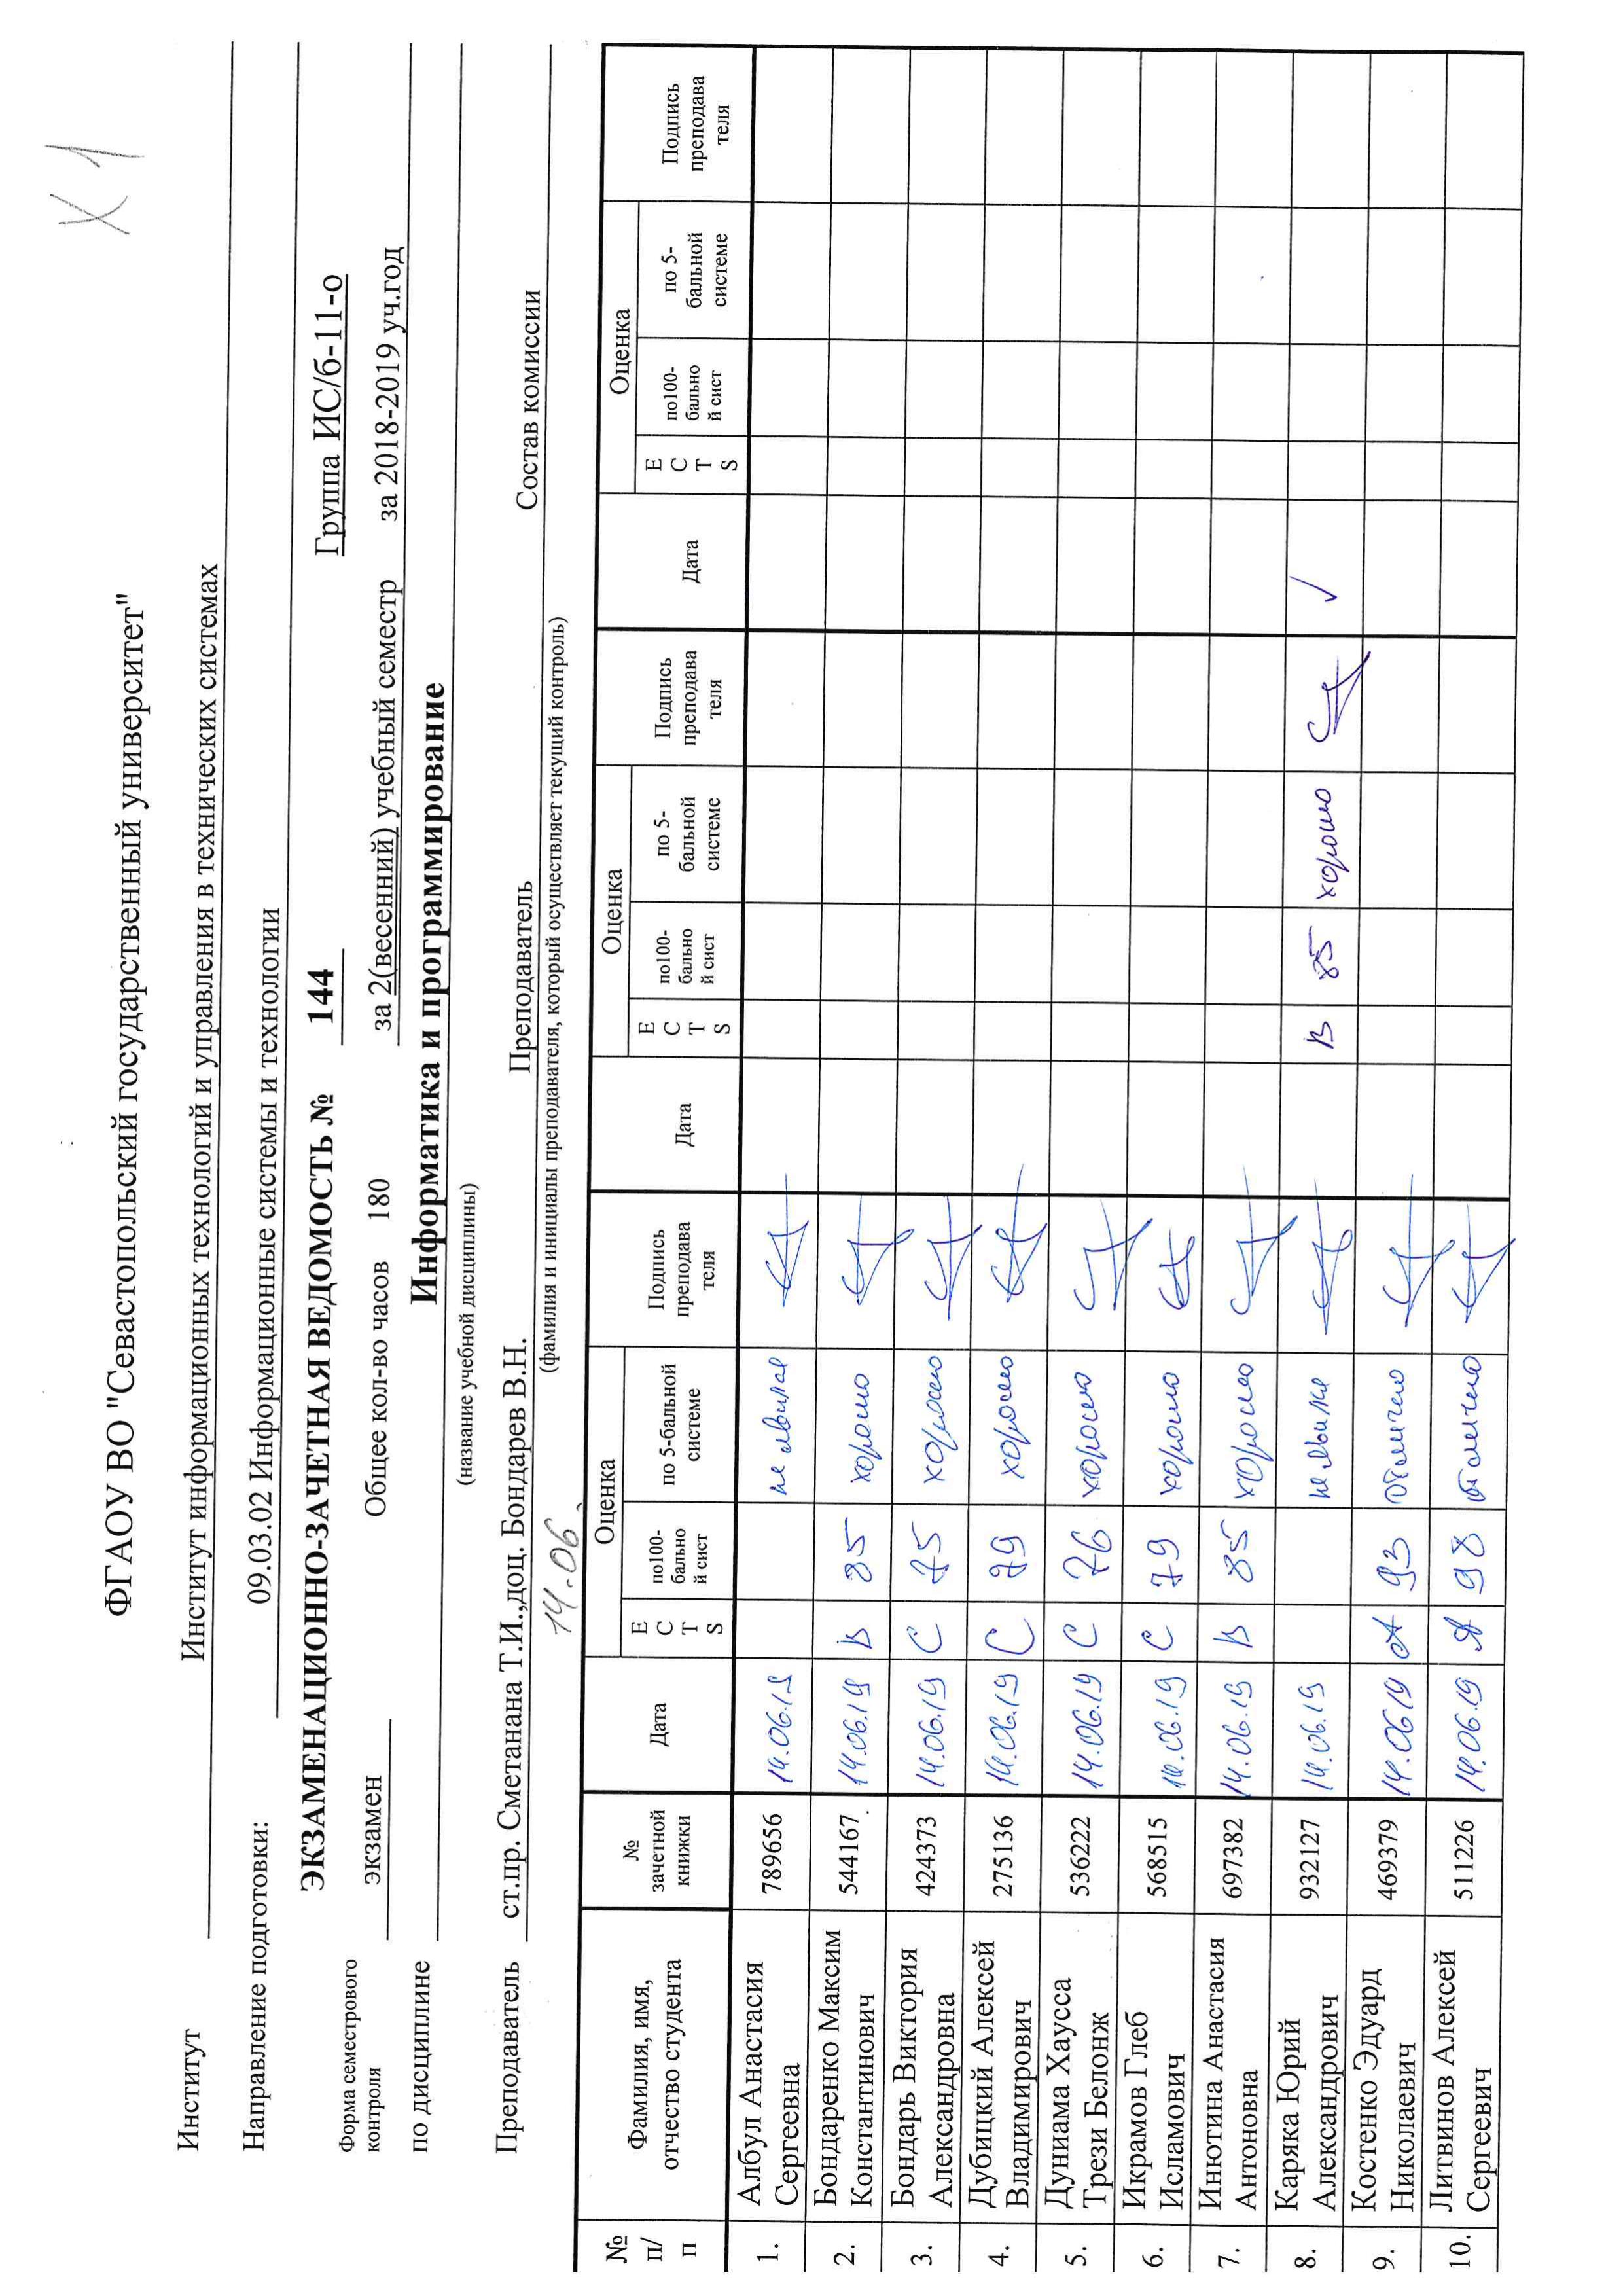 X 1
ФГАОУ ВО "Севастопольский государственный университет"
Институт Институт информационных технологий и управления в технических системах
Направление подготовки: 09.03.02 Информационные системы и технологии
ЭКЗАМЕНАЦИОННО-ЗАЧЕТНАЯ ВЕДОМОСТЬ № 144 Группа ИС/б-11-о
Форма семестрового
контроля экзамен Общее кол-во часов 180 за 2(весенний) учебный семестр за 2018-2019 уч.год
по дисциплине Информатика и программирование
(название учебной дисциплины)
Преподаватель ст.пр. Сметанана Т.И.,доц. Бондарев В.Н. Преподаватель Состав комиссии
(фамилия и инициалы преподавателя, который осуществляет текущий контроль)
14.06.
№ п/п Фамилия, имя, отчество студента № зачетной книжки Дата Оценка ECTS по100-бально й сист по 5-бальной системе Подпись преподава теля Дата Оценка ECTS по100-бально й сист по 5-бальной системе Подпись преподава теля Дата Оценка ECTS по100-бально й сист по 5-бальной системе Подпись преподава теля
1. Албул Анастасия Сергеевна 789656 14.06.19 не явился
2. Бондаренко Максим Константинович 544167 14.06.19 B 85 хорошо
3. Бондарь Виктория Александровна 424373 14.06.19 C 75 хорошо
4. Дубицкий Алексей Владимирович 275136 14.06.19 C 79 хорошо
5. Дуниама Хаусса Трези Белонж 536222 14.06.19 C 76 хорошо
6. Икрамов Глеб Исламович 568515 14.06.19 C 79 хорошо
7. Инютина Анастасия Антоновна 697382 14.06.19 B 85 хорошо
8. Каряка Юрий Александрович 932127 14.06.19 не явился B 85 хорошо ✓
9. Костенко Эдуард Николаевич 469379 14.06.19 A 93 отлично
10. Литвинов Алексей Сергеевич 511226 14.06.19 A 98 отлично